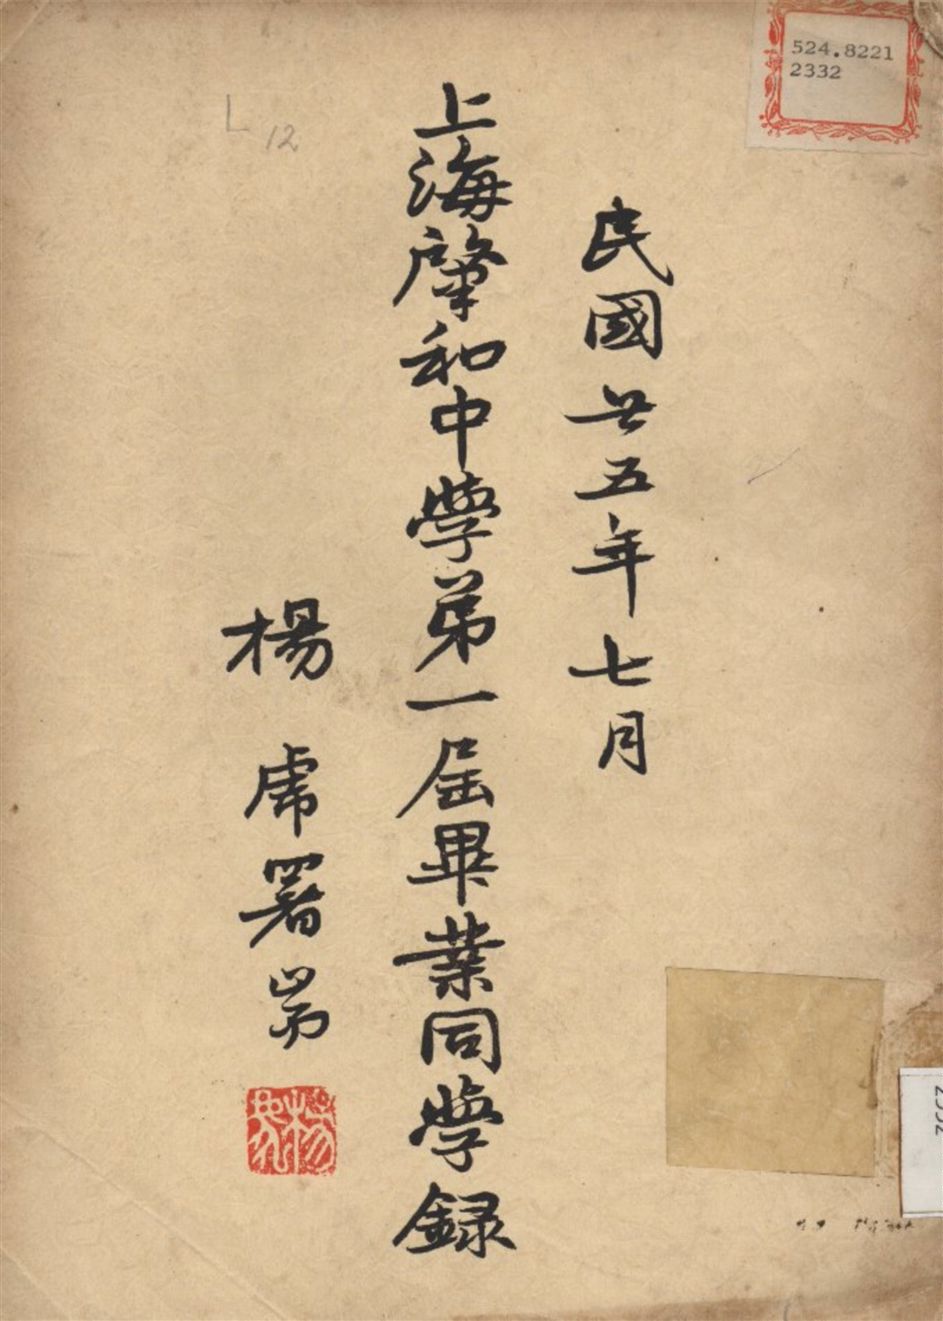 524.8221
2332
L 12
民國廿五年七月
上海肇和中學第一屆畢業同學錄
楊虎署耑
2332